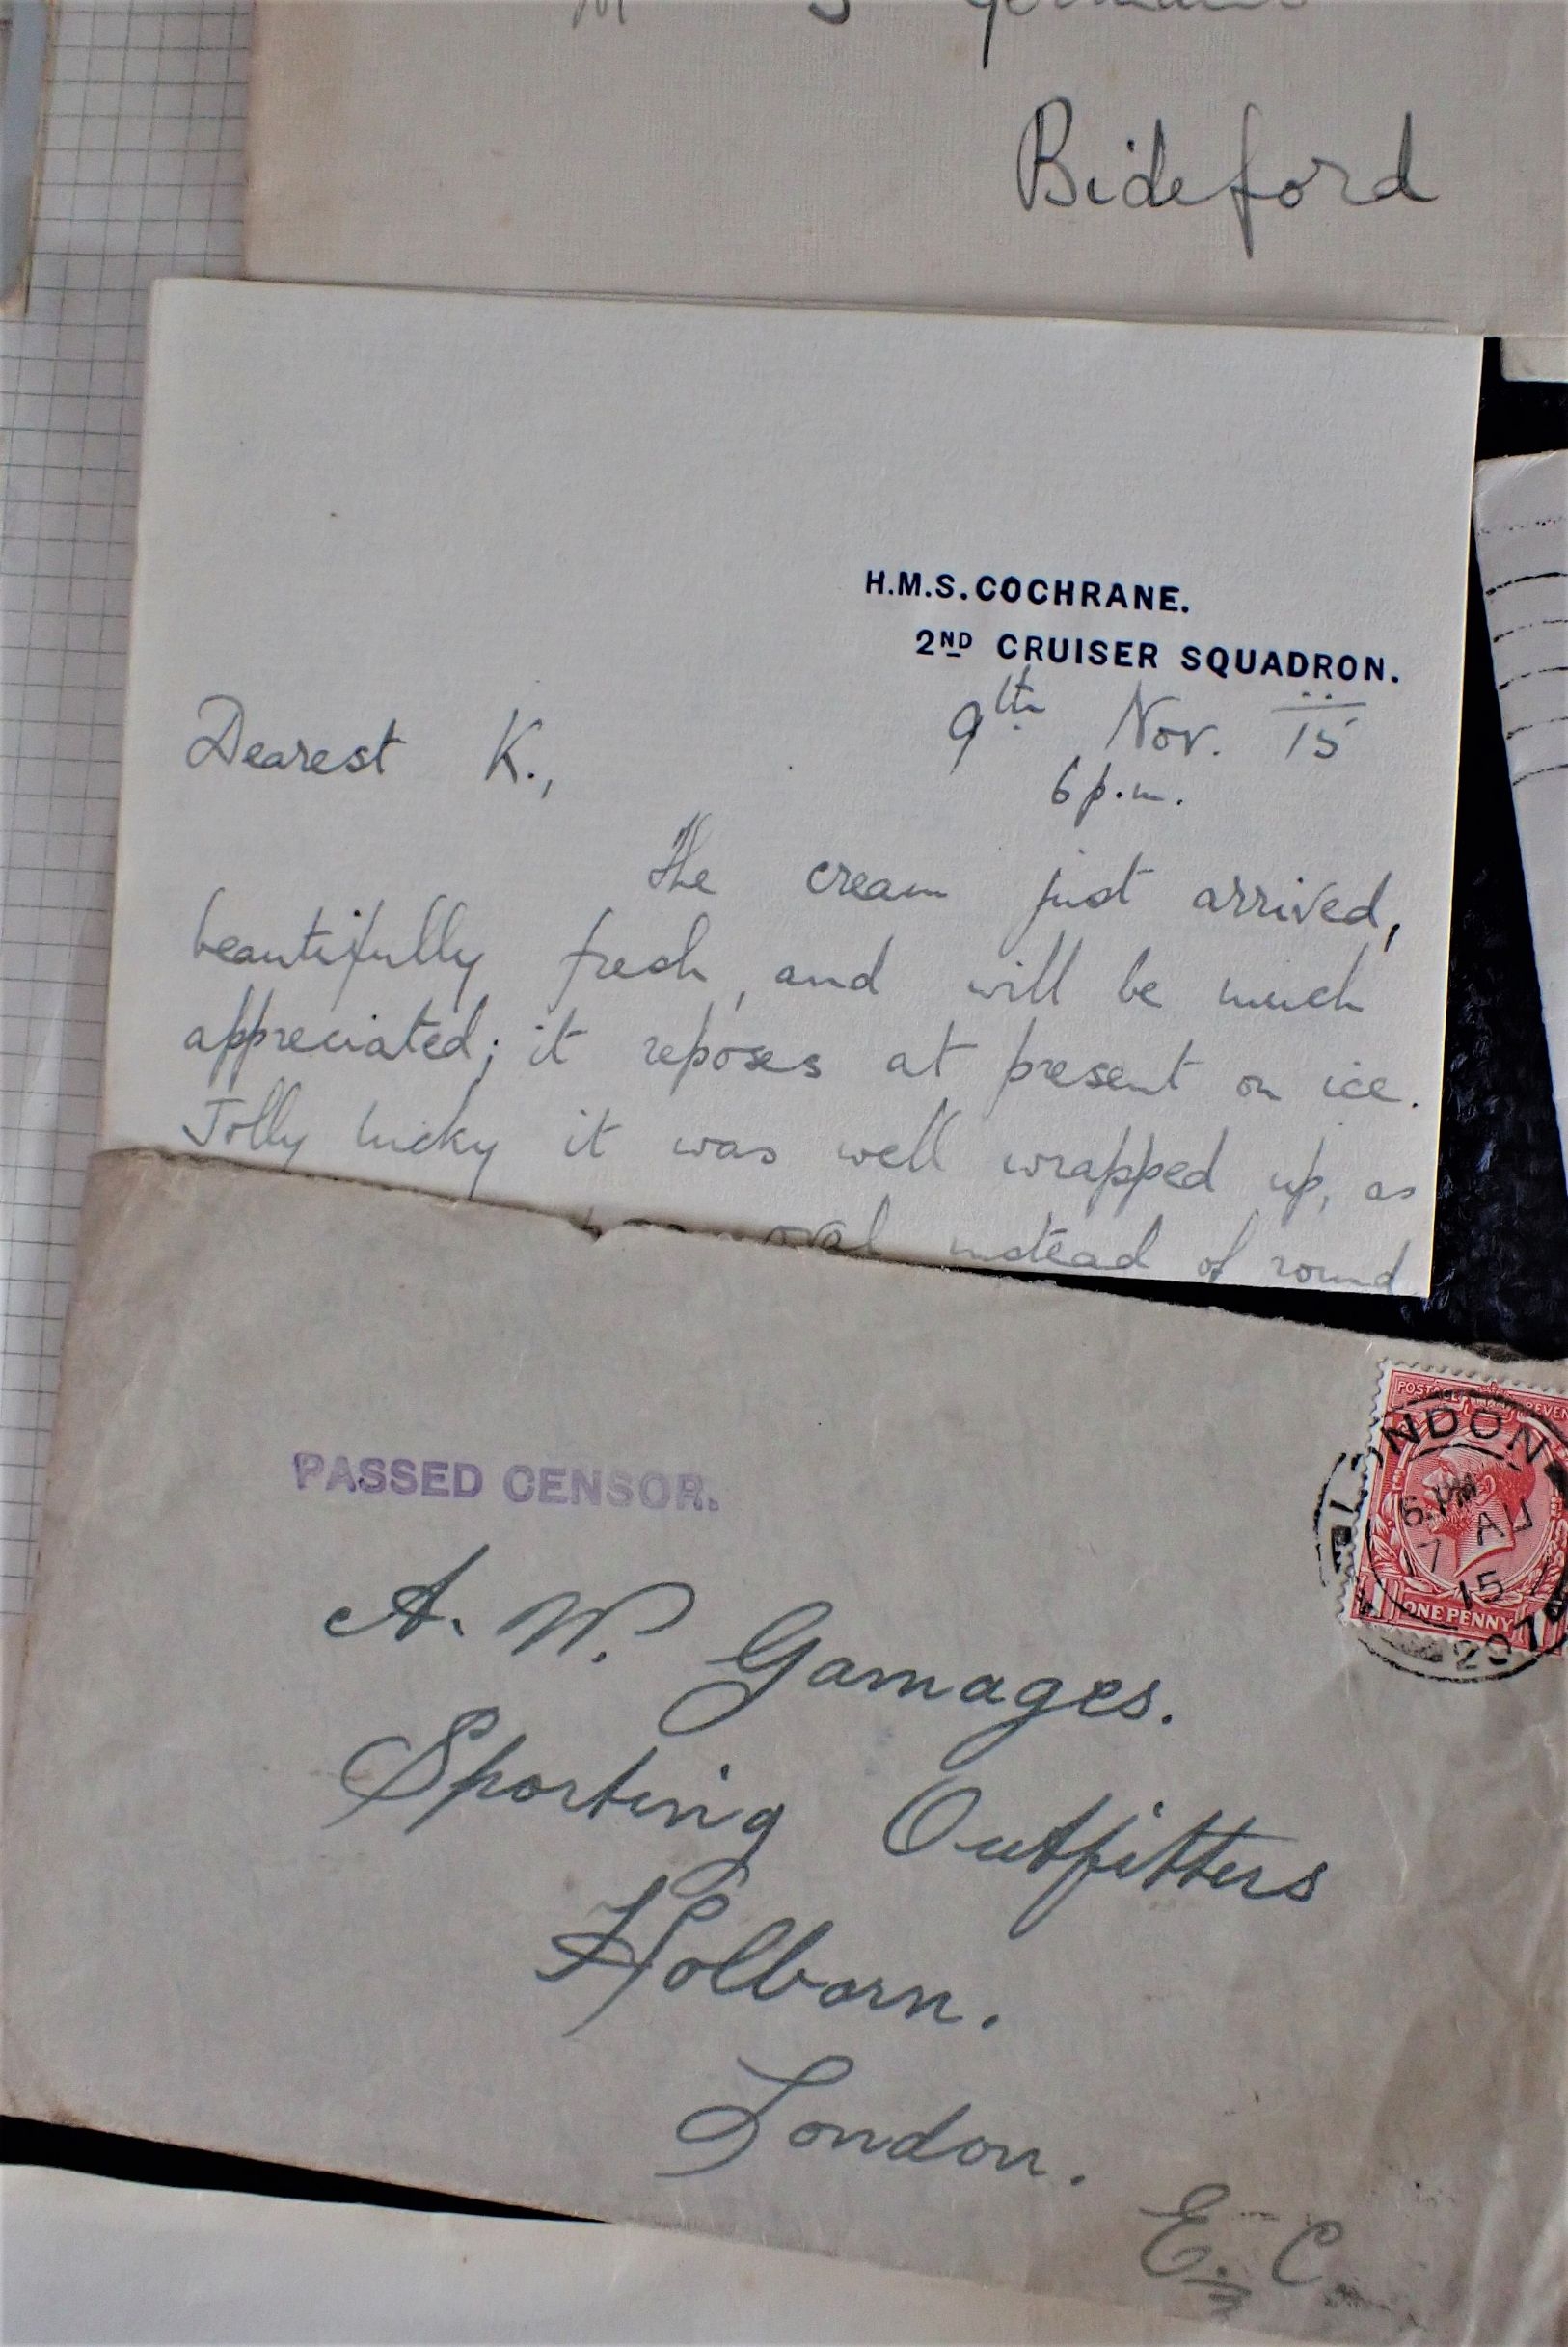 Bideford
H.M.S. COCHRANE.
2ND CRUISER SQUADRON.
9th Nov. 15
6 p.m.
Dearest K.,
The cream just arrived,
beautifully fresh, and will be much
appreciated; it reposes at present on ice.
Jolly lucky it was well wrapped up, as
oval instead of round
PASSED CENSOR.
POSTAGE REVEN
LONDON
6. PM
17 AU
15
ONE PENNY
A. W. Gamages.
Sporting Outfitters
Holborn.
London.
E. C.